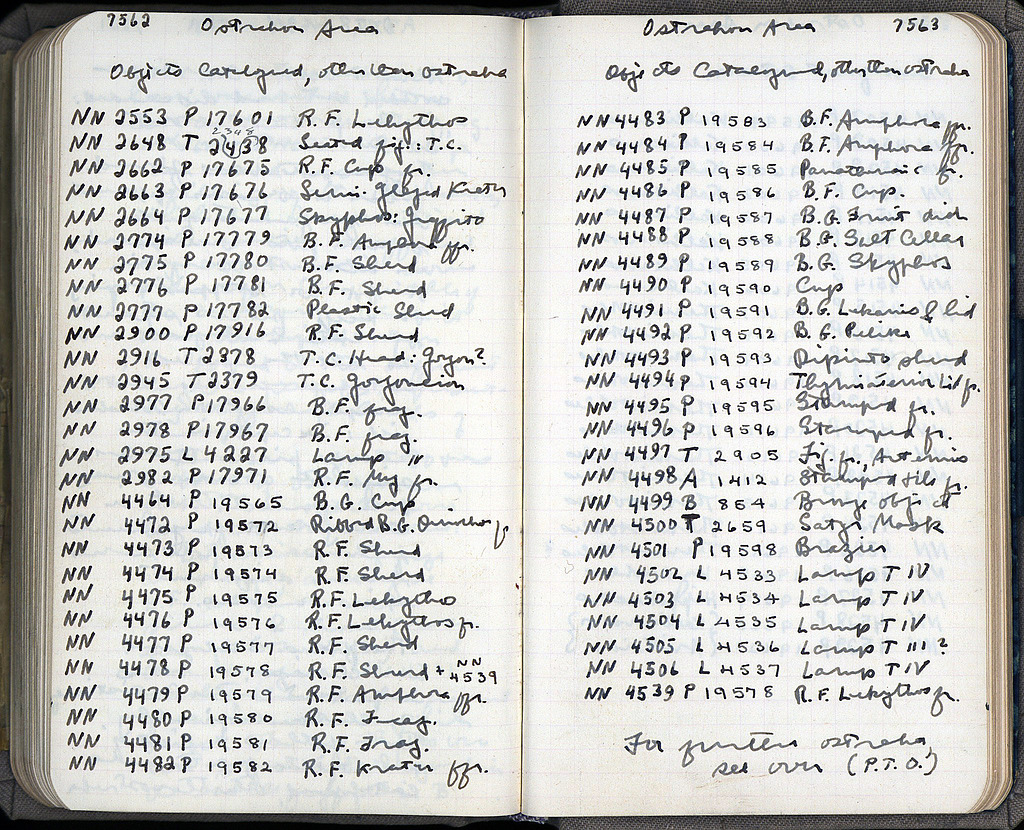 7562
Ostrakon Area
Objects Catalogued, other than ostraka
NN 2553 P 17601 R.F. Lekythos
2348
NN 2648 T 2438 Seated fig.: T.C.
NN 2662 P 17675 R.F. Cup fr.
NN 2663 P 17676 Semi-glazed Krater
NN 2664 P 17677 Skyphos: Graffito
NN 2774 P 17779 B.F. Amphora ffr.
NN 2775 P 17780 B.F. Sherd
NN 2776 P 17781 B.F. Sherd
NN 2777 P 17782 Plastic Sherd
NN 2900 P 17916 R.F. Sherd
NN 2916 T 2378 T.C. Head: Gorgon?
NN 2945 T 2379 T.C. gorgoneion
NN 2977 P 17966 B.F. frag.
NN 2978 P 17967 B.F. frag.
NN 2975 L 4227 Lamp
NN 2982 P 17971 R.F. Mug fr.
NN 4464 P 19565 B.G. Cup
NN 4472 P 19572 Ribbed B.G. Oinochoe fr
NN 4473 P 19573 R.F. Sherd
NN 4474 P 19574 R.F. Sherd
NN 4475 P 19575 R.F. Lekythos
NN 4476 P 19576 R.F. Lekythos fr.
NN 4477 P 19577 R.F. Sherd
NN 4478 P 19578 R.F. Sherd + NN 4539
NN 4479 P 19579 R.F. Amphora ffr.
NN 4480 P 19580 R.F. Frag.
NN 4481 P 19581 R.F. Frag.
NN 4482 P 19582 R.F. Krater ffr.
Ostrakon Area 7563
Objects Catalogued, other than ostraka
NN 4483 P 19583 B.F. Amphora fr.
NN 4484 P 19584 B.F. Amphora ffr.
NN 4485 P 19585 Panatenaic fr.
NN 4486 P 19586 B.F. Cup.
NN 4487 P 19587 B.G. Fruit dish
NN 4488 P 19588 B.G. Salt Cellar
NN 4489 P 19589 B.G. Skyphos
NN 4490 P 19590 Cup
NN 4491 P 19591 B.G. Lekanis & lid
NN 4492 P 19592 B.G. Pelike
NN 4493 P 19593 Dipinto sherd
NN 4494 P 19594 Thymiaterion Lid fr.
NN 4495 P 19595 Stamped fr.
NN 4496 P 19596 Stamped fr.
NN 4497 T 2905 Fig. fr., Artemis
NN 4498 A 1412 Stamped tile fr.
NN 4499 B 854 Bronze object
NN 4500 T 2659 Satyr Mask
NN 4501 P 19598 Brazier
NN 4502 L 4533 Lamp T IV
NN 4503 L 4534 Lamp T IV
NN 4504 L 4535 Lamp T IV
NN 4505 L 4536 Lamp T III ?
NN 4506 L 4537 Lamp T IV
NN 4539 P 19578 R.F. Lekythos fr.
For further ostraka
see over (P.T.O.)